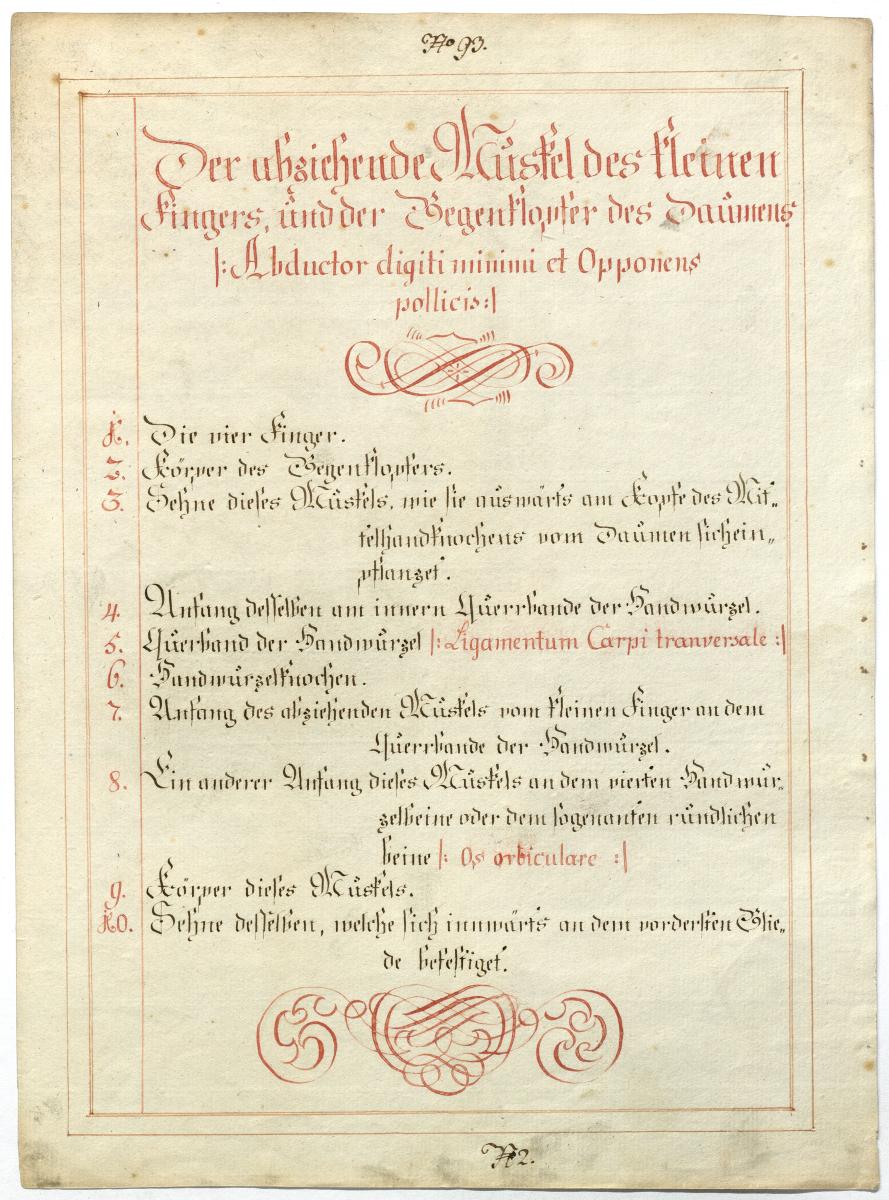 No 93.
Der abziehende Muskel des kleinen
Fingers, und der Gegenklopfer des Daumens
|: Abductor digiti minimi et Opponens
pollicis :|
1. Die vier Finger.
2. Körper des Gegenklopfers.
3. Sehne dieses Muskels, wie sie auswärts am Kopfe des Mit„
telhandknochens vom Daumen sich ein„
pflanzet.
4. Anfang desselben am innern Querrbande der Handwurzel.
5. Querband der Handwurzel |: Ligamentum Carpi tranversale :|
6. Handwurzelknochen.
7. Anfang des abziehenden Muskels vom kleinen Finger an dem
Querrbande der Handwurzel.
8. Ein anderer Anfang dieses Muskels an dem vierten Handwur„
zelbeine oder dem sogenanten rundlichen
beine |: Os orbiculare :|
9. Körper dieses Muskels.
10. Sehne desselben, welche sich innwärts an dem vordersten Glie„
de befestiget.
N 2.